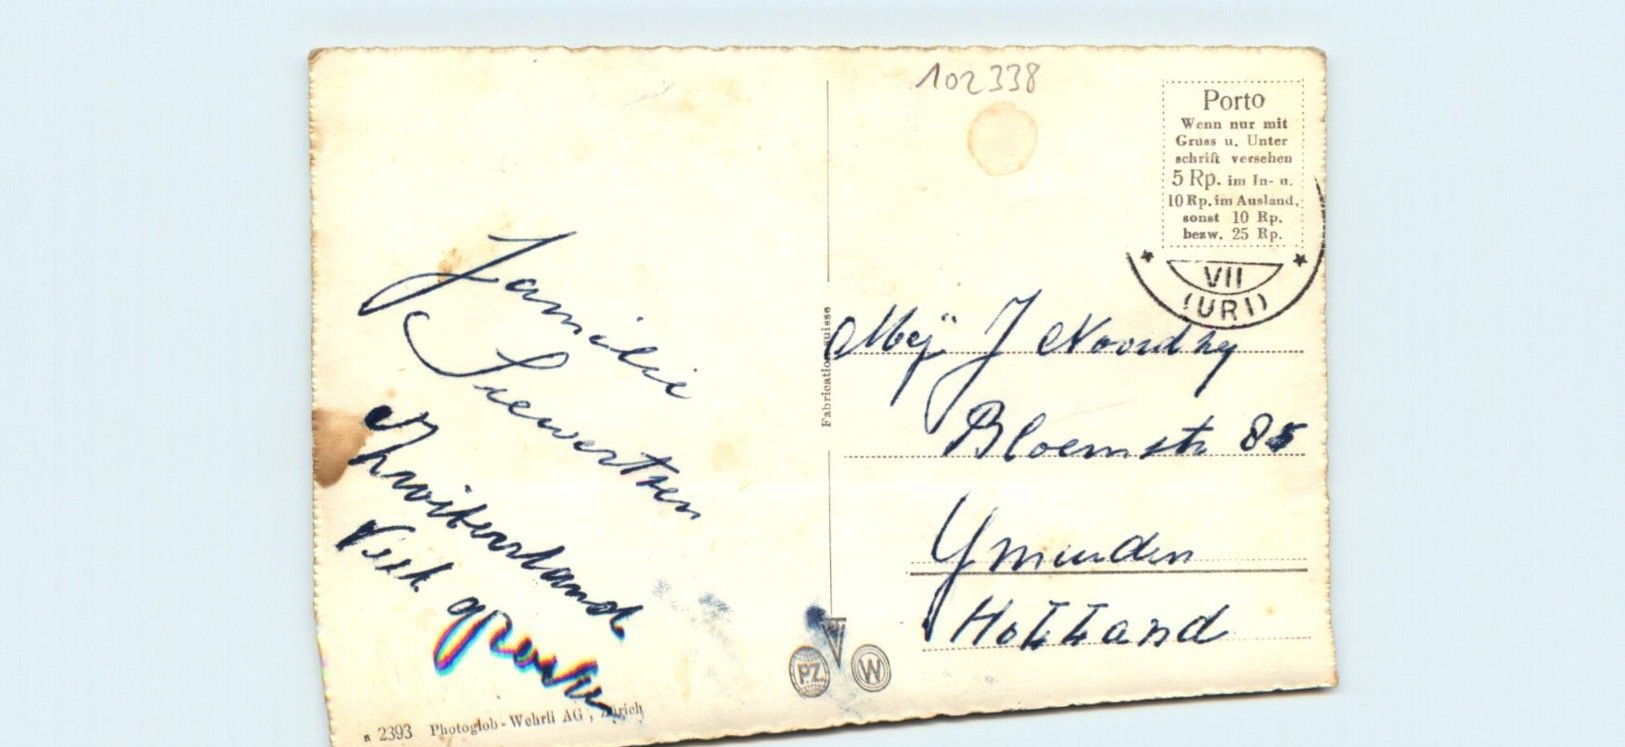 102338
Porto
Wenn nur mit
Gruss u. Unter
schrift versehen
5 Rp. im In- u.
10 Rp. im Ausland,
sonst 10 Rp.
bezw. 25 Rp.
VII
(URI)
Familie
Siewertsen
Zwitserland
Veel groeten
Mej J Noordzy
Bloemstr 85
Ymuiden
Holland
Fabrication suisse
PZ
W
2393 Photoglob-Wehrli AG, Zürich